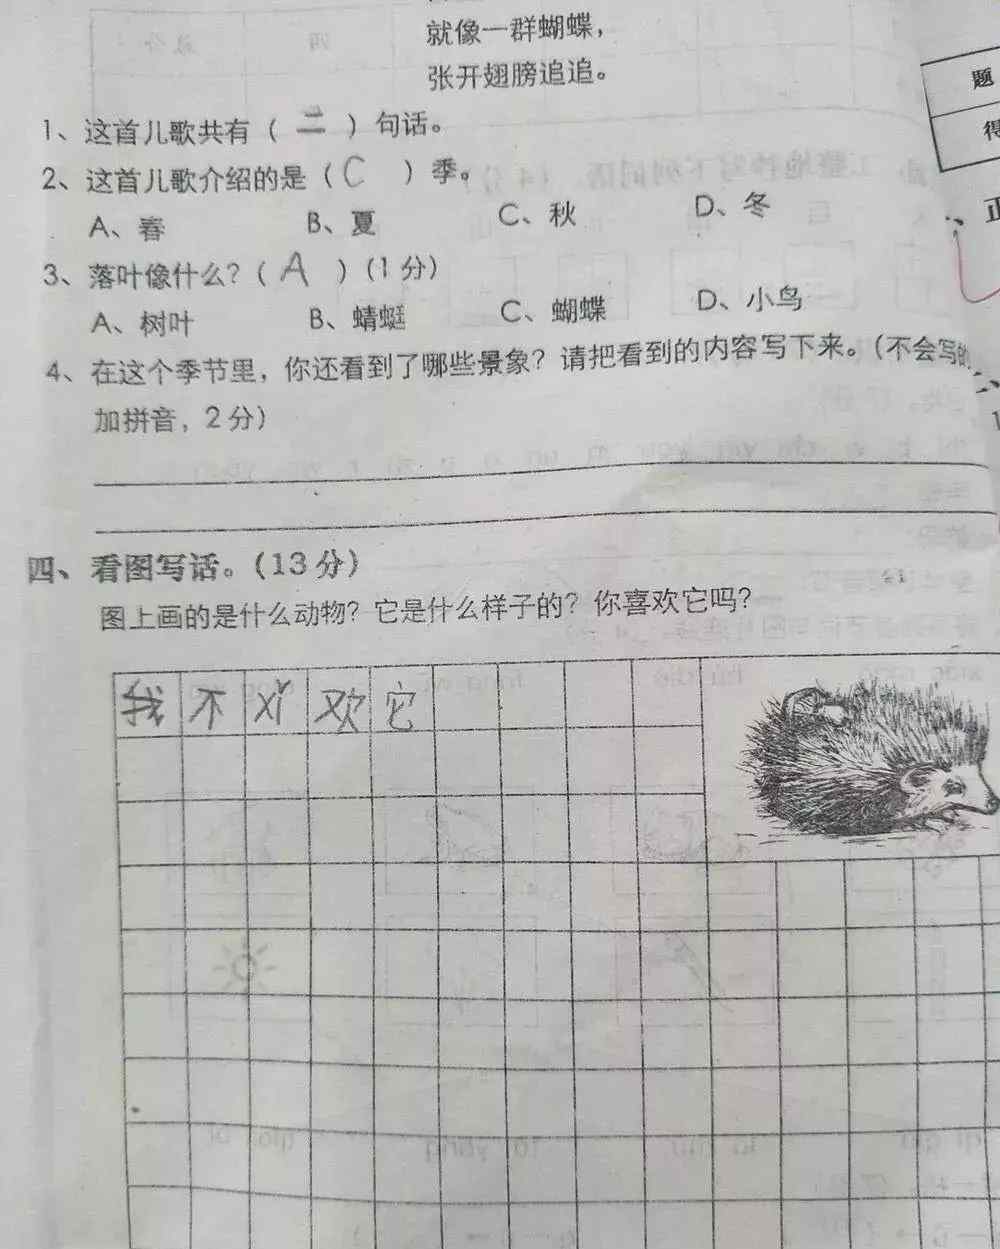 就像一群蝴蝶，
张开翅膀追追。
题
得
1、这首儿歌共有（ 二 ）句话。
2、这首儿歌介绍的是（ C ）季。
A、春 B、夏 C、秋 D、冬
3、落叶像什么？（ A ）（1分）
A、树叶 B、蜻蜓 C、蝴蝶 D、小鸟
4、在这个季节里，你还看到了哪些景象？请把看到的内容写下来。（不会写的
加拼音，2分）
四、看图写话。（13分）
图上画的是什么动物？它是什么样子的？你喜欢它吗？
我不 欢它